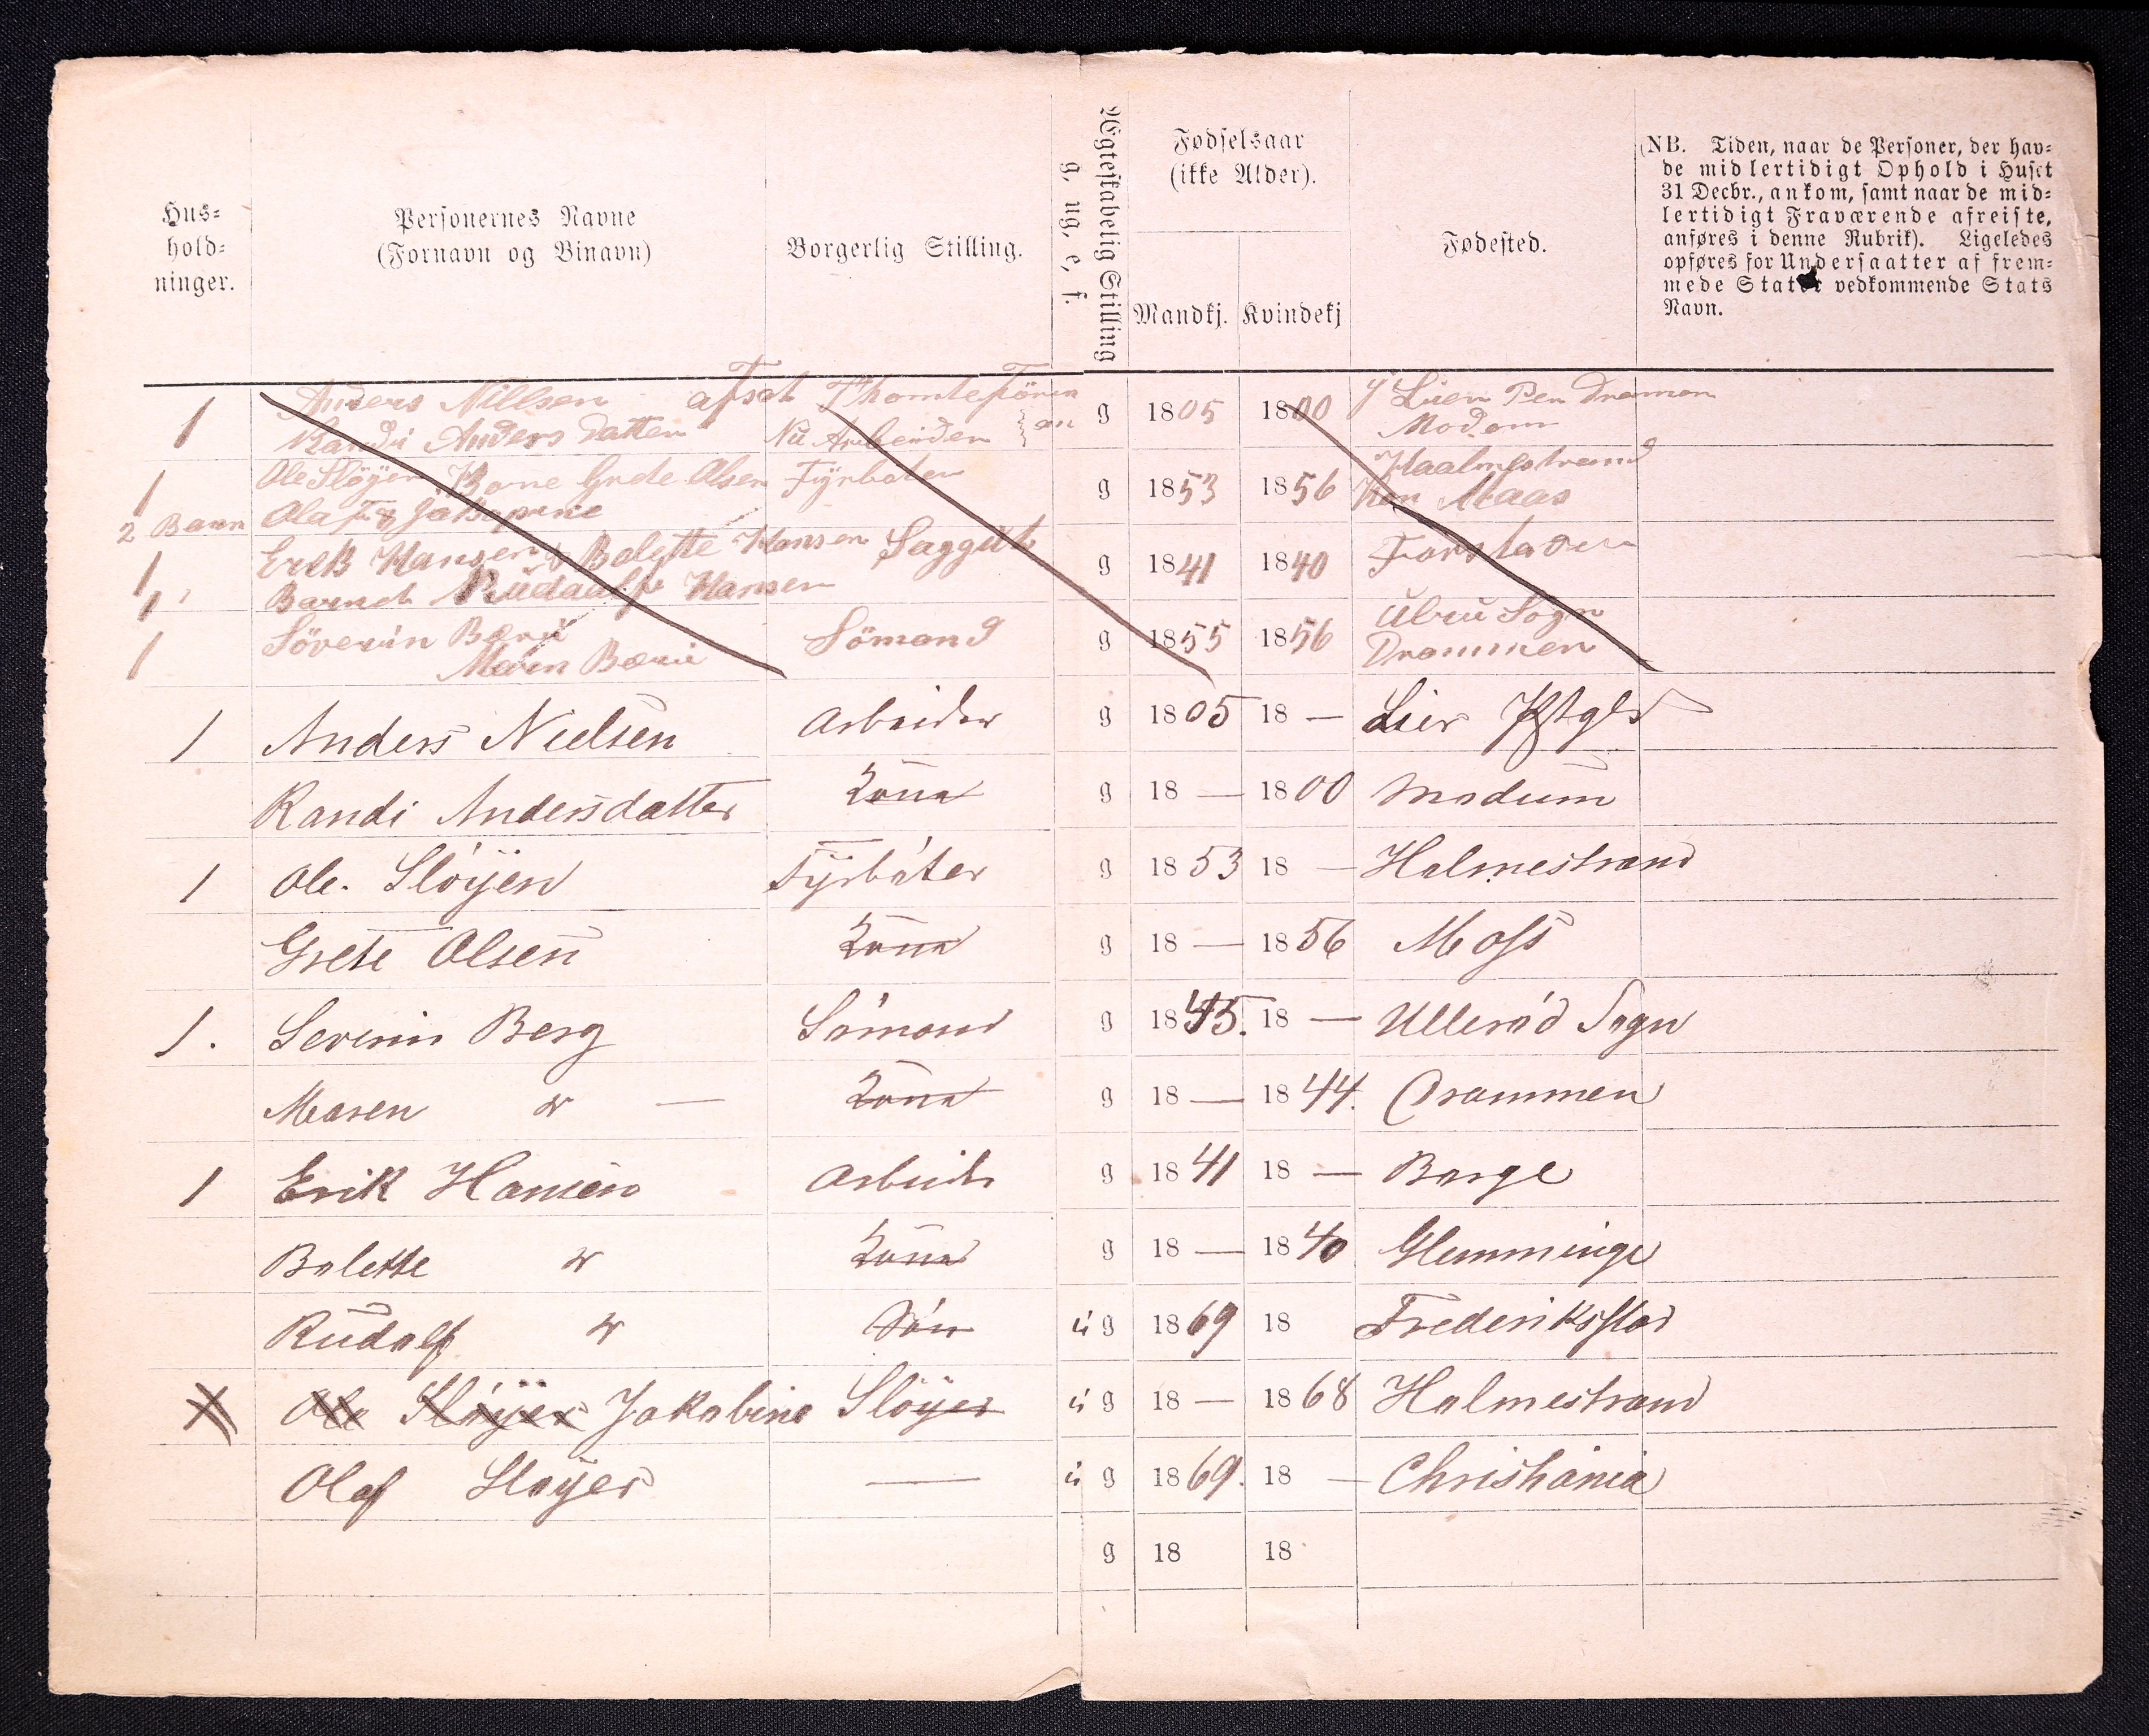 Hus-
hold-
ninger.
Personernes Navne
(Fornavn og Binavn)
Borgerlig Stilling.
Ægteskabelig Stilling
g, ug, e, f.
Fødselsaar
(ikke Alder).
Mandkj. Kvindekj
Fødested.
(NB. Tiden, naar de Personer, der hav-
de midlertidigt Ophold i Huset
31 Decbr., ankom, samt naar de mid-
lertidigt Fraværende afreiste,
anføres i denne Rubrik). Ligeledes
opføres for Undersaatter af frem-
mede Stater vedkommende Stats
Navn.
1 Anders Nillsen afsat g 1805 1800 Lier Per Dramen
Randi Anders datter Nu Arbeider Modom
1 Ole Slöyer Grete Olsen Fyrböter g 1853 1856 Haalmestrand
2 Barn Olaf & Maas
1 Erik Hansen & Bolette Hansen g 1841 1840
1 Barnet Rudaalf Hansen
1 Söverin Sömand g 1855 1856 Sogn
Maren Drammen
1 Anders Nielsen Arbeider g 1805 18 — Lier Pstgld
Randi Andersdatter Kone g 18 — 1800 Modum
1 Ole. Slöyer Fyrböter g 1853 18 — Holmestrand
Grete Olsen Kone g 18 — 1856 Moss
1. Severin Berg Sömand g 1845. 18 — Ullerød Sogn
Maren " — Kone g 18 — 1844. Drammen
1 Erik Hansen Arbeider g 1841 18 — Borge
Bolette " Kone g 18 — 1840 Glemminge
Rudolf " Sön ug 1869 18 Frederiksstad
Ole Slöyer Jakobine Slöyer ug 18 — 1868 Holmestrand
Olaf Slöyer — ug 1869. 18 — Christiania
g 18 18